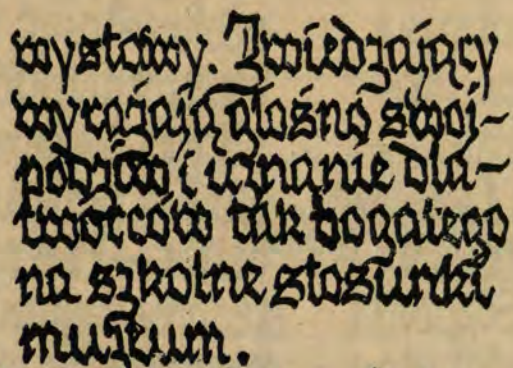 wystawy. Zwiedzający
wyrażają głośno swój-
podziw i uznanie dla-
twórców tak bogatego
na szkolne stosunki
muzeum.